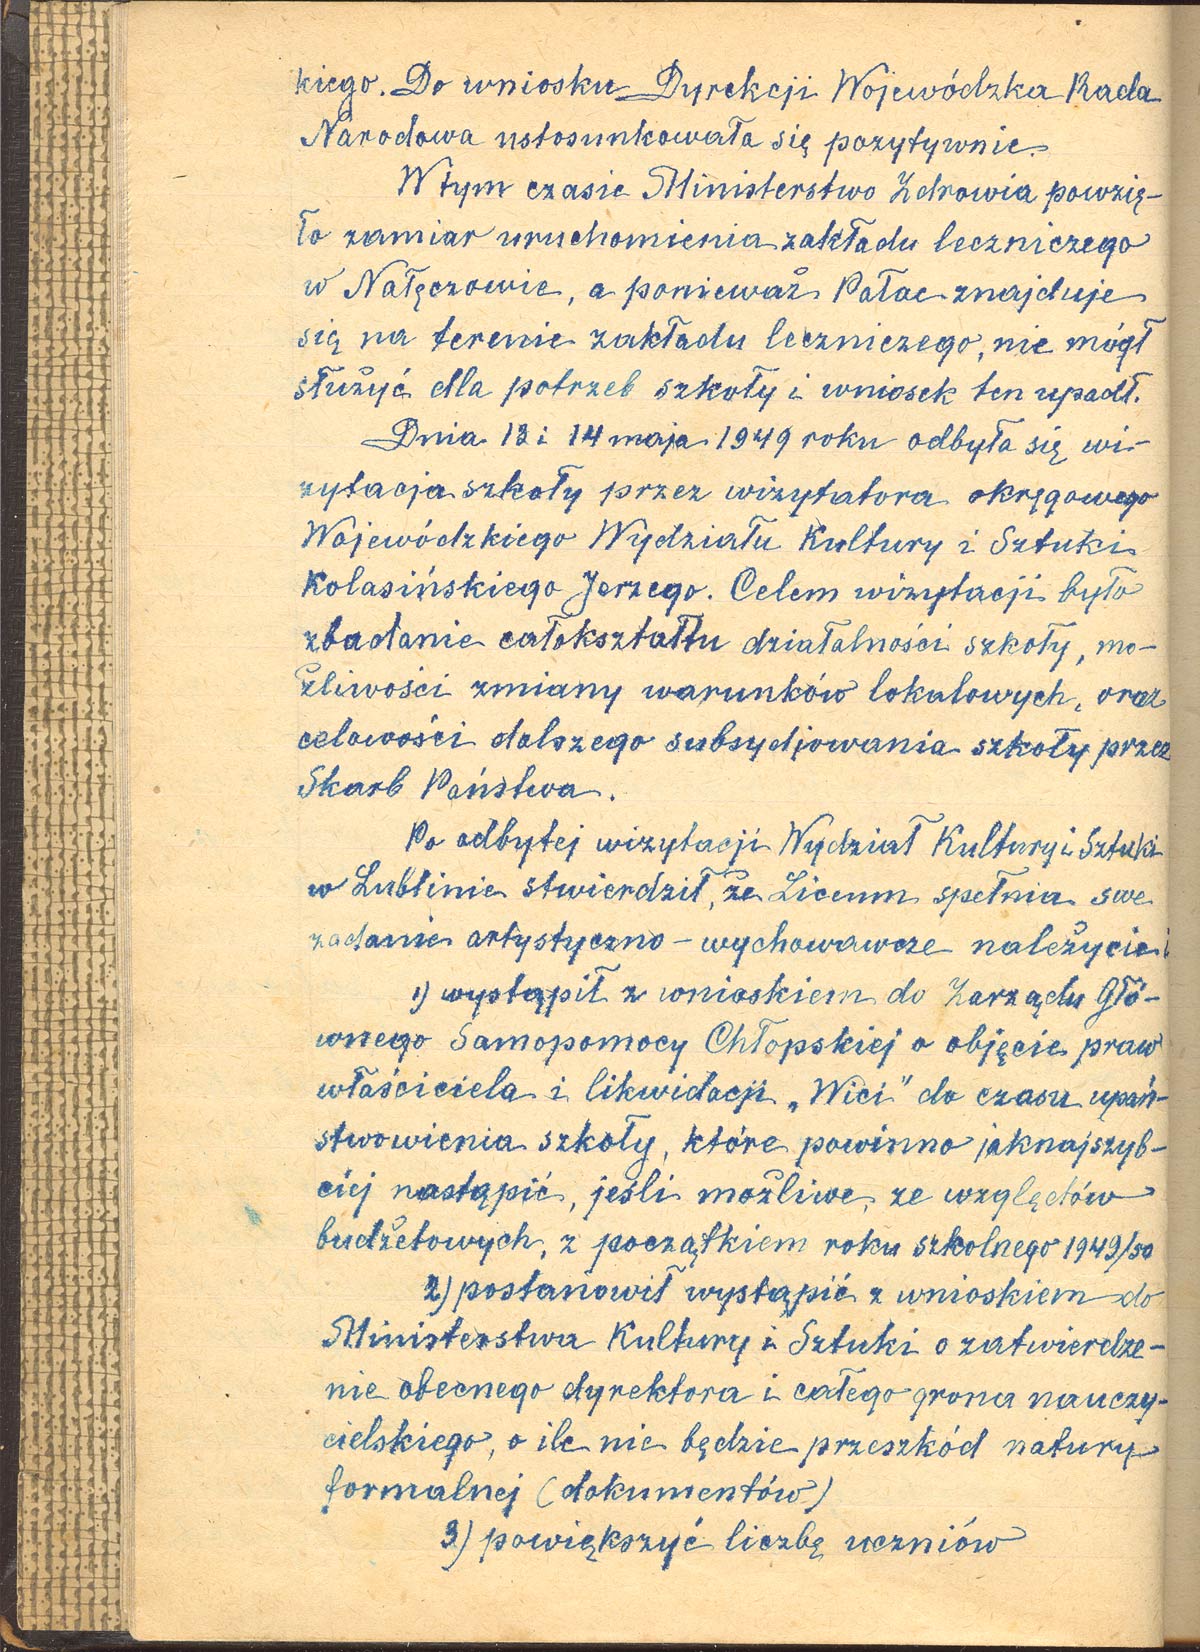 kiego. Do wniosku Dyrekcji Wojewódzka Rada
Narodowa ustosunkowała się pozytywnie.
W tym czasie Ministerstwo Zdrowia powzię-
ło zamiar uruchomienia zakładu leczniczego
w Nałęczowie, a ponieważ Pałac znajduje
się na terenie zakładu leczniczego, nie mógł
służyć dla potrzeb szkoły i wniosek ten upadł.
Dnia 13 i 14 maja 1949 roku odbyła się wi-
zytacja szkoły przez wizytatora okręgowego
Wojewódzkiego Wydziału Kultury i Sztuki
Kolasińskiego Jerzego. Celem wizytacji było
zbadanie całokształtu działalności szkoły, mo-
żliwości zmiany warunków lokalowych, oraz
celowości dalszego subsydjowania szkoły przez
Skarb Państwa.
Po odbytej wizytacji Wydział Kultury i Sztuki
w Lublinie stwierdził, że Liceum spełnia swe
zadanie artystyczno - wychowawcze należycie i
1) wystąpił z wnioskiem do Zarządu Głó-
wnego Samopomocy Chłopskiej o objęcie praw
właściciela i likwidacji „Wici" do czasu upań-
stwowienia szkoły, które powinno jaknajszyb-
ciej nastąpić, jeśli możliwe, ze względów
budżetowych, z początkiem roku szkolnego 1949/50
2) postanowił wystąpić z wnioskiem do
Ministerstwa Kultury i Sztuki o zatwierdze-
nie obecnego dyrektora i całego grona nauczy-
cielskiego, o ile nie będzie przeszkód natury
formalnej (dokumentów)
3) powiększyć liczbę uczniów